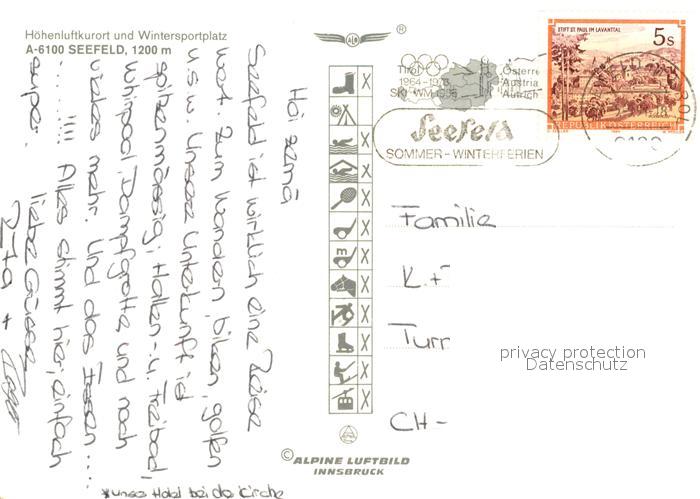 Höhenluftkurort und Wintersportplatz
A-6100 SEEFELD, 1200 m
Hoi zemä
Seefeld ist wirklich eine Reise
wert. Zum Wandern, biken, golfen
u.s.w. Unsere Unterkunft ist
spitzenmässig; Hallen- u. Freibad,
Whirlpool, Dampfgrotte und noch
vieles mehr. Und das Essen...
......!!!! Alles stimmt hier, einfach
super.
liebe Grüsse
Rita +
*unser Hotel bei der Kirche
ALB
®
Tirol
1964-1976
SKI WM 1985
Österre
Austria
Autrich
Seefeld
SOMMER-WINTERFERIEN
STIFT ST. PAUL IM LAVANTTAL
5s
REPUBLIK ÖSTERREICH
X
X
X
X
X
m X
X
X
X
X
X
Familie
K. +
Turr
CH-
privacy protection
Datenschutz
© ALPINE LUFTBILD
INNSBRUCK